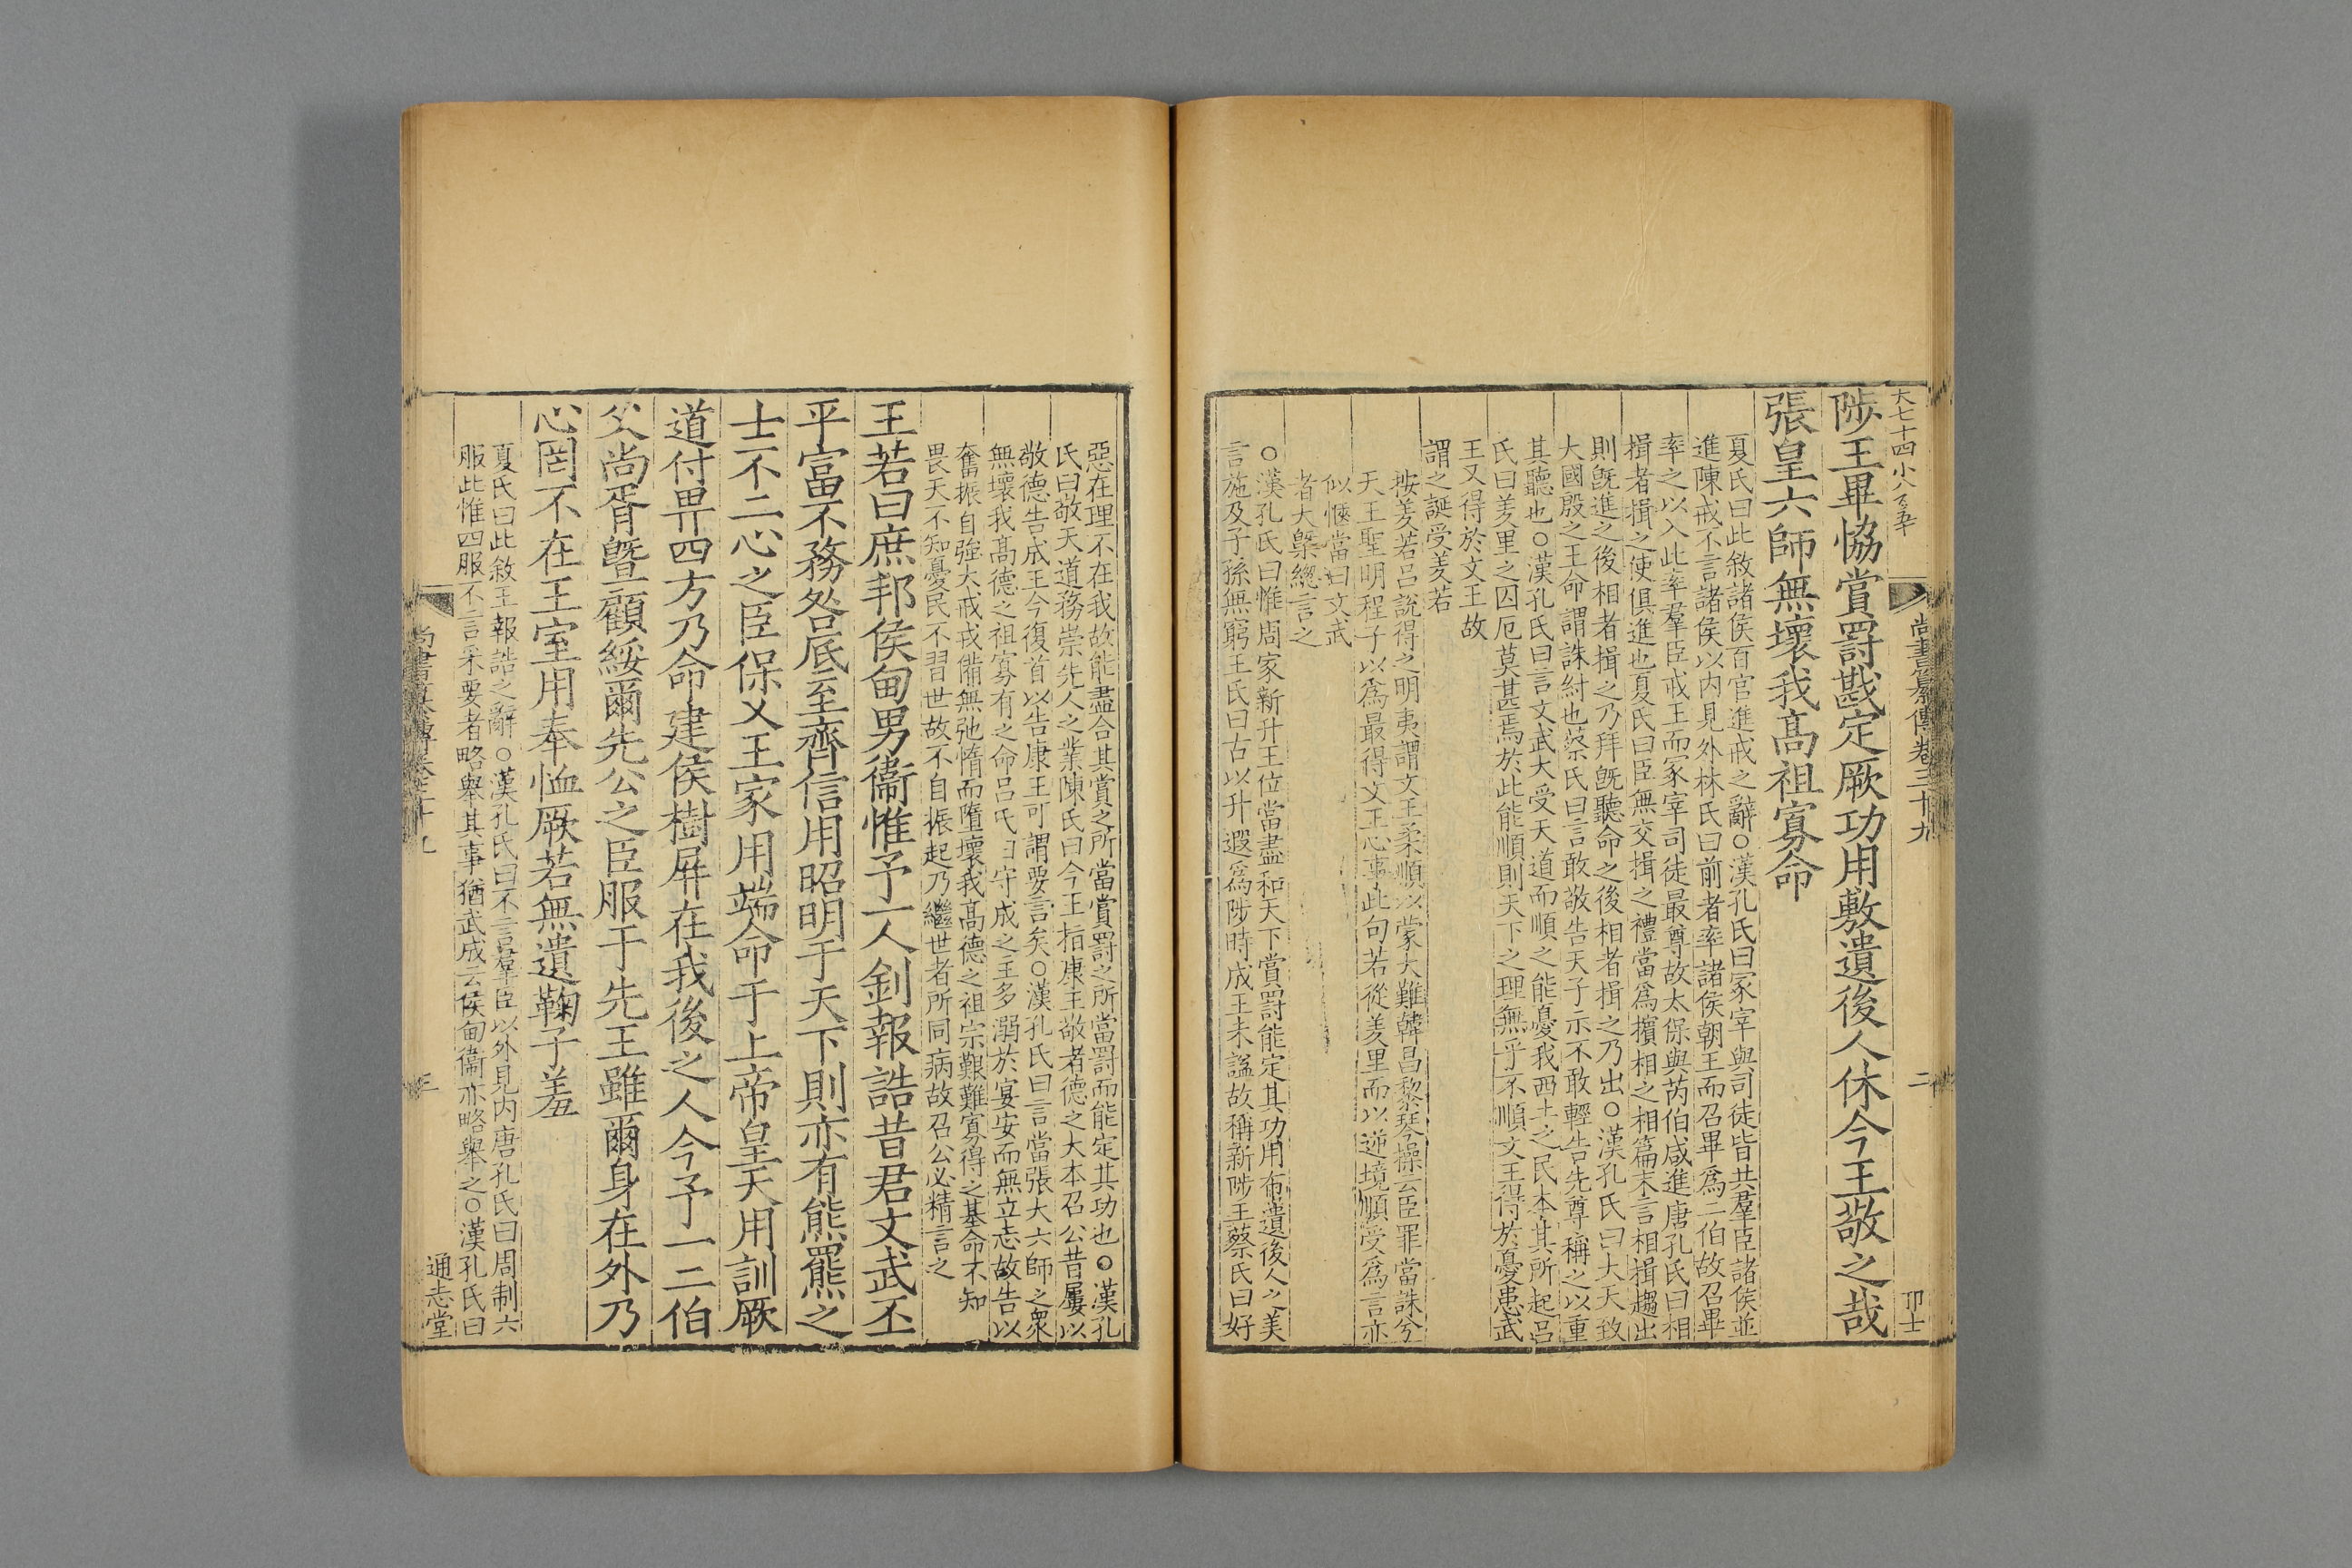 大七十四小八百五十
尚書纂傳卷三十九
二
卬士
陟王畢協賞罰戡定厥功用敷遺後人休今王敬之哉
張皇六師無壞我髙祖寡命
夏氏曰此敘諸侯百官進戒之辭○漢孔氏曰冢宰與司徒皆共羣臣諸侯並
進陳戒不言諸侯以內見外林氏曰前者率諸侯朝王而召畢爲二伯故召畢
率之以入此率羣臣戒王而冢宰司徒最尊故太保與芮伯咸進唐孔氏曰相
揖者揖之使俱進也夏氏曰臣無交揖之禮當爲擯相之相篇末言相揖趨出
則旣進之後相者揖之乃拜旣聽命之後相者揖之乃出○漢孔氏曰大天致
大國殷之王命謂誅紂也蔡氏曰言敢敬告天子示不敢輕告先尊稱之以重
其聽也○漢孔氏曰言文武大受天道而順之能憂我西土之民本其所起吕
氏曰羑里之囚厄莫甚焉於此能順則天下之理無乎不順文王得於憂患武
王又得於文王故
謂之誕受羑若
按羑若吕說得之明夷謂文王柔順以蒙大難韓昌黎琴操云臣罪當誅兮
天王聖明程子以爲最得文王心事此句若從羑里而以逆境順受爲言亦
似愜當曰文武
者大槩總言之
○漢孔氏曰惟周家新升王位當盡和天下賞罰能定其功用布遺後人之美
言施及子孫無窮王氏曰古以升遐爲陟時成王未謚故稱新陟王蔡氏曰好
惡在理不在我故能盡合其賞之所當賞罰之所當罰而能定其功也○漢孔
氏曰敬天道務崇先人之業陳氏曰今王指康王敬者德之大本召公昔屢以
敬德告成王今復首以告康王可謂要言矣○漢孔氏曰言當張大六師之衆
無壞我髙德之祖寡有之命吕氏曰守成之主多溺於宴安而無立志故告以
奮振自強大戒戎備無弛惰而墮壞我髙德之祖宗艱難寡得之基命不知
畏天不知憂民不習世故不自振起乃繼世者所同病故召公必精言之
王若曰庶邦侯甸男衞惟予一人釗報誥昔君文武丕
平富不務咎厎至齊信用昭明于天下則亦有熊羆之
士不二心之臣保乂王家用端命于上帝皇天用訓厥
道付畀四方乃命建侯樹屏在我後之人今予一二伯
父尚胥曁顧綏爾先公之臣服于先王雖爾身在外乃
心罔不在王室用奉恤厥若無遺鞠子羞
夏氏曰此敘王報誥之辭○漢孔氏曰不言羣臣以外見內唐孔氏曰周制六
服此惟四服不言采要者略舉其事猶武成云侯甸衞亦略舉之○漢孔氏曰
尚書纂傳卷三十九
三
通志堂